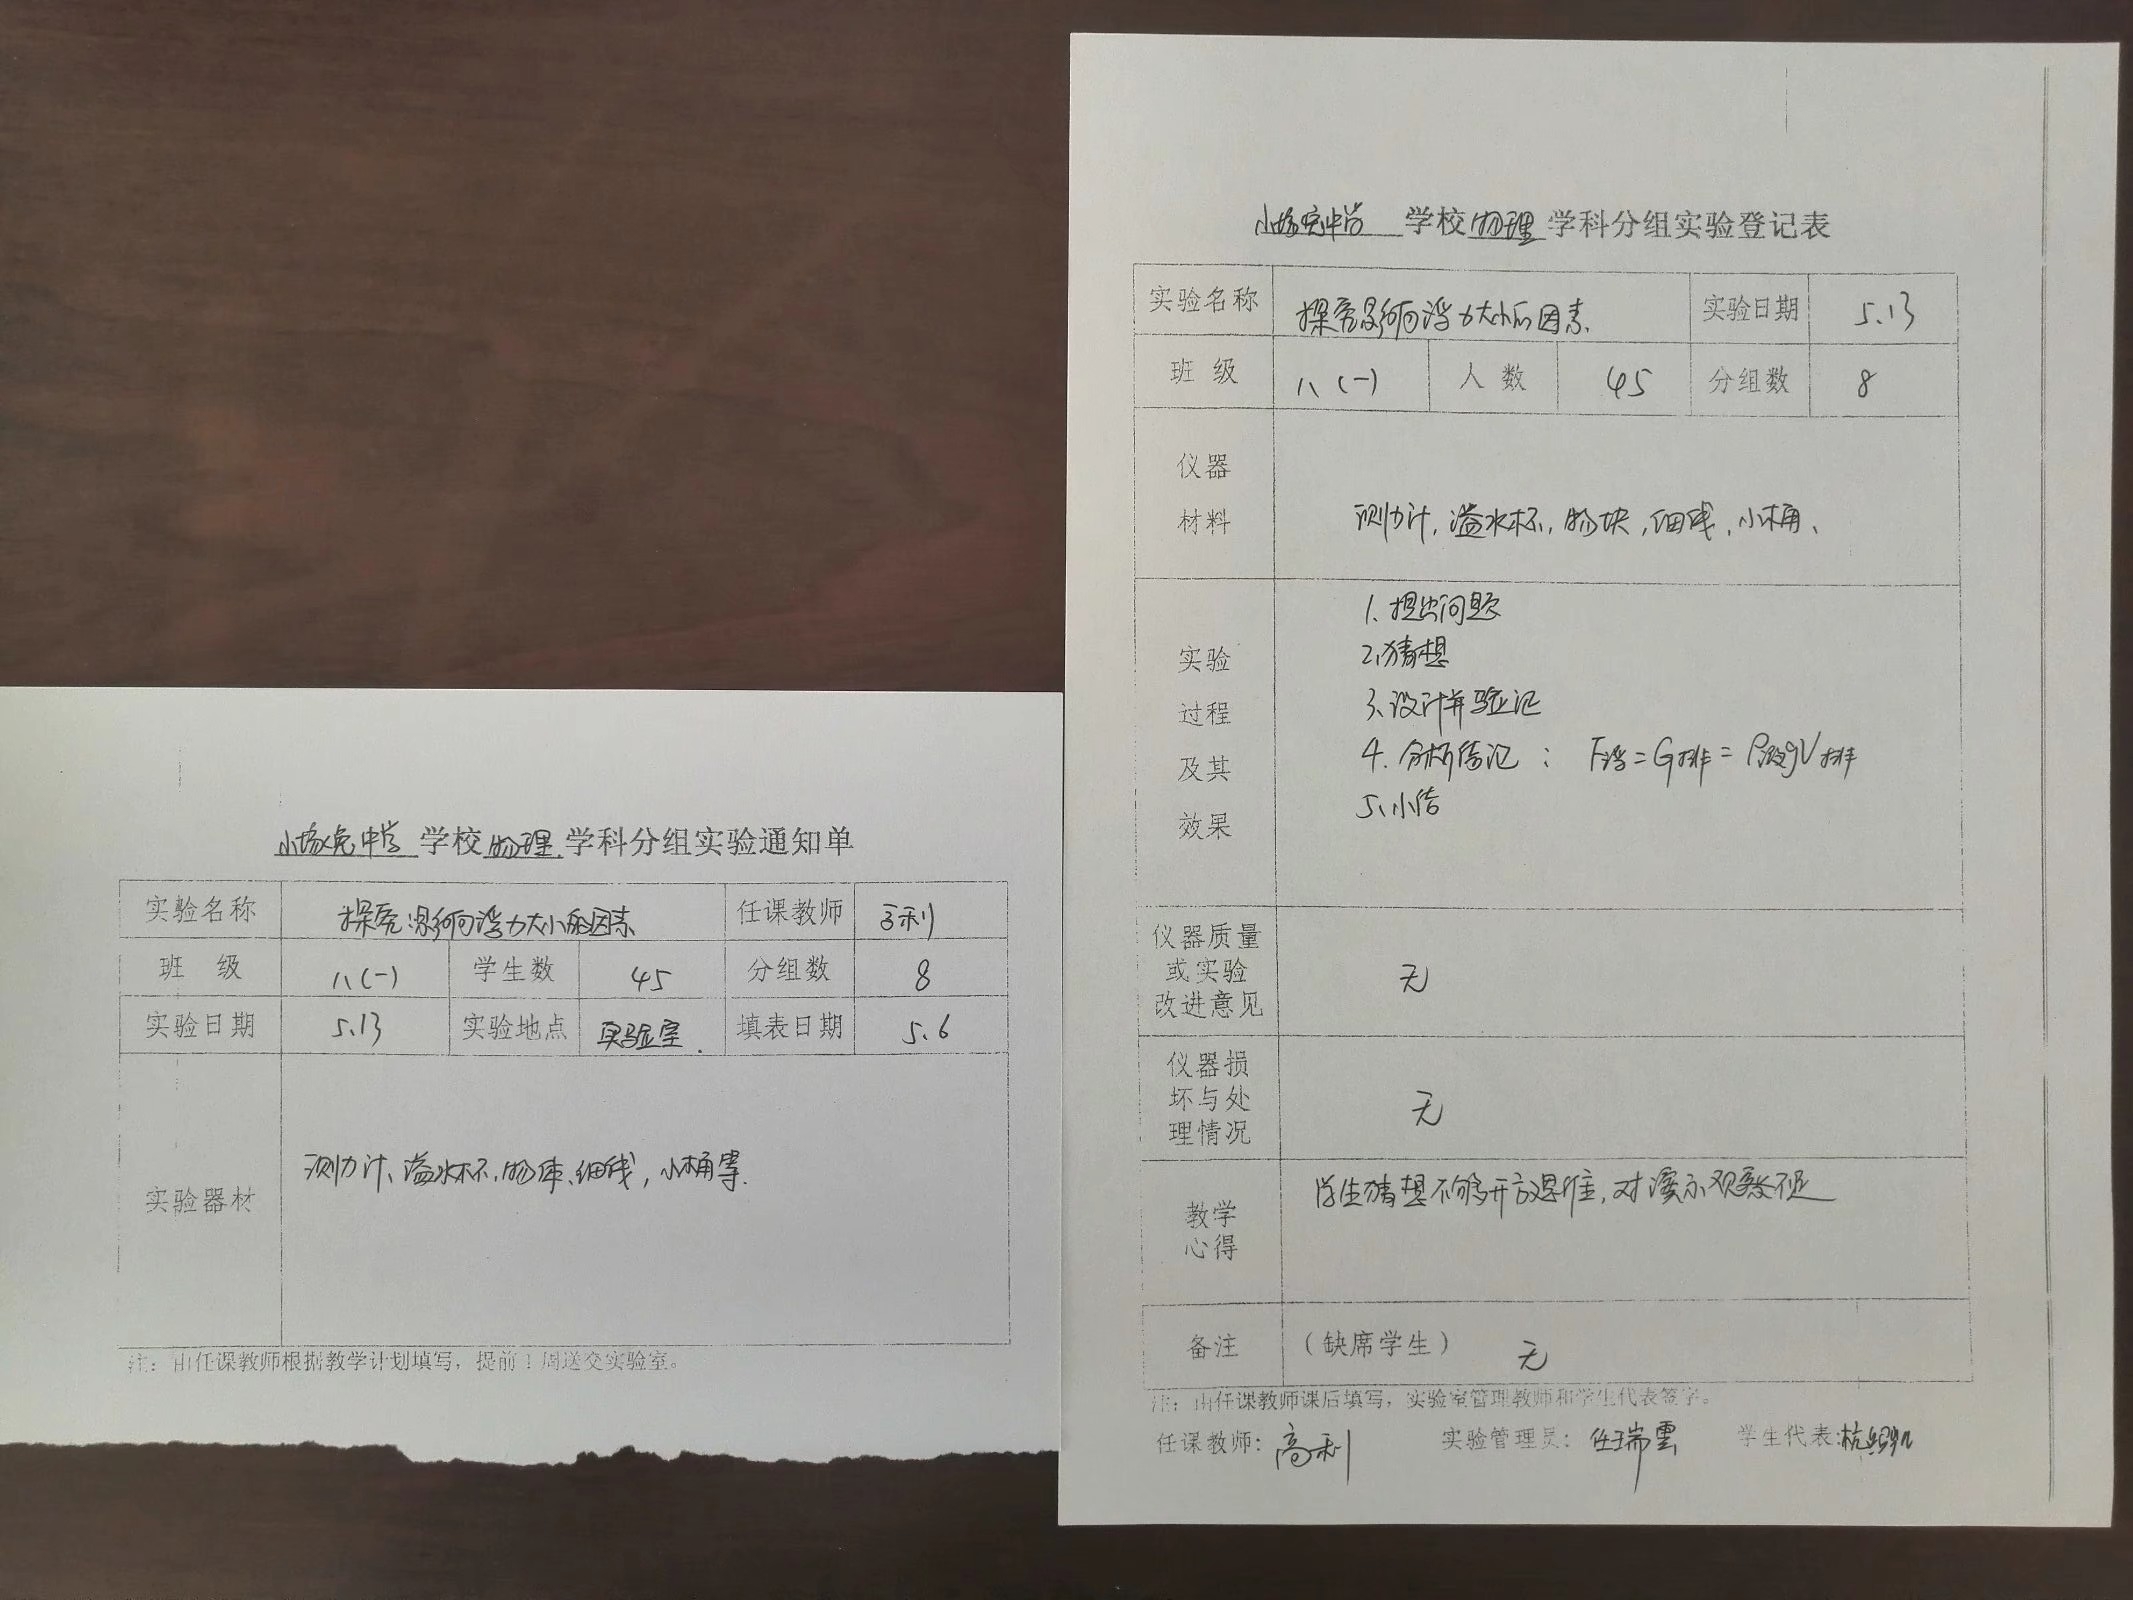 中学 学校 物理 学科分组实验通知单
实验名称 探究影响浮力大小的因素 任课教师 高利
班 级 八(一) 学生数 45 分组数 8
实验日期 5.13 实验地点 实验室. 填表日期 5.6
实验器材 测力计、溢水杯、物体、细线，小桶等.
注：由任课教师根据教学计划填写，提前1周送交实验室。
中学 学校 物理 学科分组实验登记表
实验名称 探究影响浮力大小的因素. 实验日期 5.13
班 级 八(一) 人 数 45 分组数 8
仪器
材料
测力计, 溢水杯, 物块, 细线, 小桶、
实验
过程
及其
效果
1. 提出问题
2.猜想
3.设计并验证
4. 分析结论： F浮=G排=ρ液gV排
5.小结
仪器质量
或实验
改进意见
无
仪器损
坏与处
理情况
无
教学
心得
学生猜想不够开放思维, 对演示观察不足
备注 （缺席学生） 无
注：由任课教师课后填写，实验室管理教师和学生代表签字。
任课教师: 高利 实验管理员: 任瑞雲 学生代表: